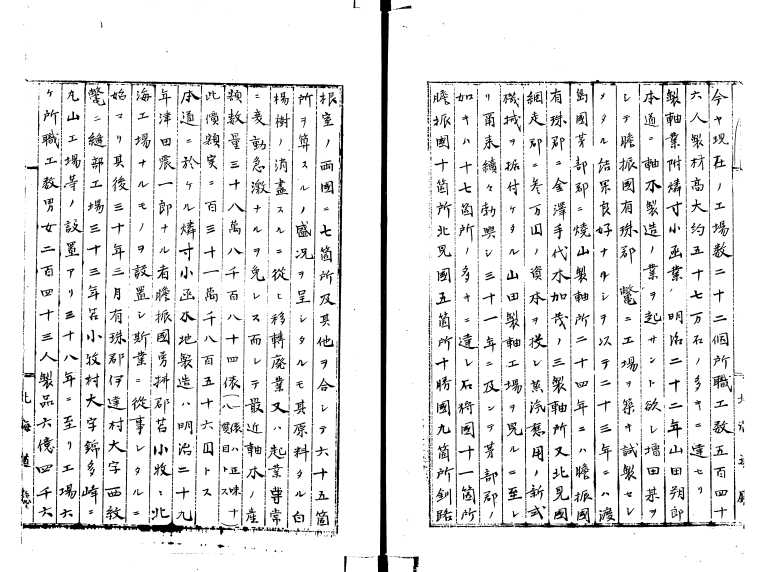 今ヤ現在ノ工場数二十二個所職工数五百四十
六人製材高大約五十七万石ノ多キニ達セリ
製軸業附燐寸小函業 明治二十二年山田朔郎
本道ニ軸木製造ノ業ヲ起サント欲シ増田某ヲ
シテ膽振國有珠郡 ニ工場ヲ築キ試製セシ
メタル結果良好ナルシヲ以テ二十三年ニハ渡
島國茅部郡ニ焼山製軸所二十四年ニハ膽振國
有珠郡ニ金澤手代木加茂ノ三製軸所又北見國
網走郡ニ参万円ノ資本ヲ投シ蒸汽應用ノ新式
機械ヲ据付ケタル山田製軸工場ヲ見ルニ至レ
リ爾来續々勃興シ三十一年ニ及ンテ茅部郡ノ
如キハ十七箇所ノ多キニ達シ石狩國十一箇所
膽振國十箇所北見國五箇所十勝國九箇所釧路
根室ノ両國ニ七箇所及其他ヲ合シテ六十五箇
所ヲ算スルノ盛况ヲ呈シタルモ其原料タル白
楊樹ノ消盡スルニ從ヒ移轉廃業又ハ起業等常
ニ変動急激ナルヲ免レス而シテ最近軸木ノ産
額数量三十八萬八千百八十四俵(一俵ハ正味十八貫目トス)
此價額実ニ百三十一萬千八百五十六円トス
本道ニ於ケル燐寸小函木地製造ハ明治二十九
年津田農一郎ナル者膽振國勇拂郡苫小牧ニ北
海工場ナルモノヲ設置シ斯業ニ從事シタルニ
始マリ其後三十年三月有珠郡伊達村大字西紋
鼈ニ縫部工場三十三年苫小牧村大字錦多峰ニ
丸山工場等ノ設置アリ三十八年ニ至リ工場六
ケ所職工数男女二百四十三人製品六億四千六
北海道廳